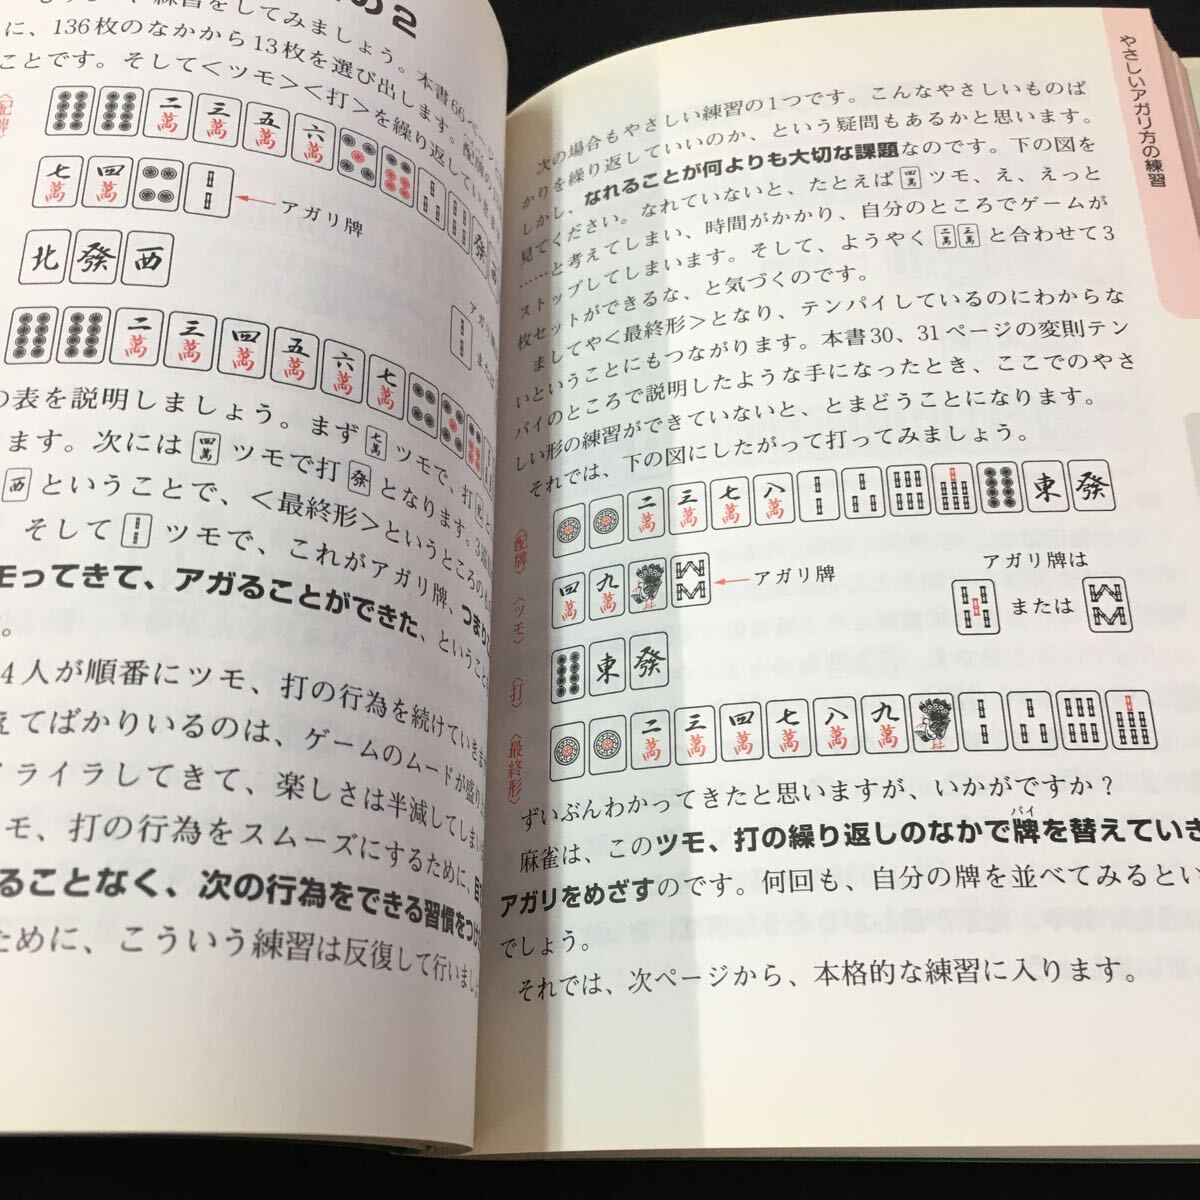 の2
練習をしてみましょう。本書66ペー
に、136枚のなかから13枚を選び出します。配牌の
ことです。そして<ツモ><打>を繰り返していきま
〈配牌〉
二萬 三萬 五萬 六萬 發
七萬 四萬
アガリ牌
北 發 西
アガリ牌
または
二萬 三萬 四萬 五萬 六萬 七萬
の表を説明しましょう。まず七萬ツモで、打北と
ます。次には四萬ツモで打發となります。3
西ということで、<最終形>というところの
そして ツモで、これがアガリ牌、つまり
モってきて、アガることができた、ということ
。
4人が順番にツモ、打の行為を続けていきま
えてばかりいるのは、ゲームのムードが盛り
イライラしてきて、楽しさは半減してしま
モ、打の行為をスムーズにするために、
ることなく、次の行為をできる習慣をつけ
ために、こういう練習は反復して行いまし
やさしいアガリ方の練習
次の場合もやさしい練習の1つです。こんなやさしいものば
かりを繰り返していいのか、という疑問もあるかと思います。
しかし、なれることが何よりも大切な課題なのです。下の図を
見てください。なれていないと、たとえば四萬ツモ、え、えっと
……と考えてしまい、時間がかかり、自分のところでゲームが
ストップしてしまいます。そして、ようやく二萬三萬と合わせて3
枚セットができるな、と気づくのです。
ましてや<最終形>となり、テンパイしているのにわからな
いということにもつながります。本書30、31ページの変則テン
パイのところで説明したような手になったとき、ここでのやさ
しい形の練習ができていないと、とまどうことになります。
それでは、下の図にしたがって打ってみましょう。
〈配牌〉
二萬 三萬 七萬 八萬 東 發
〈ツモ〉
四萬 九萬
アガリ牌
アガリ牌は
または
〈打〉
東 發
〈最終形〉
二萬 三萬 四萬 七萬 八萬 九萬
ずいぶんわかってきたと思いますが、いかがですか？
パイ
麻雀は、このツモ、打の繰り返しのなかで牌を替えていき
アガリをめざすのです。何回も、自分の牌を並べてみるとい
でしょう。
それでは、次ページから、本格的な練習に入ります。